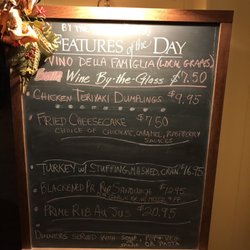 BY THE
FEATURES of the DAY
VINO DELLA FAMIGLIA (LOCAL GRAPES)
Wine By-the-Glass $7.50
CHICKEN TERIYAKI DUMPLINGS $9.95
FRIED CHEESECAKE $7.50
CHOICE OF CHOCOLATE, CARAMEL, RASPBERRY
SAUCES
TURKEY W/ STUFFING, MASHED, CORN $16.95
BLACKENED PR. RIB SANDWICH $12.95
PRIME RIB AU JUS $20.95
DINNERS SERVED WITH SOUP,
OR PASTA